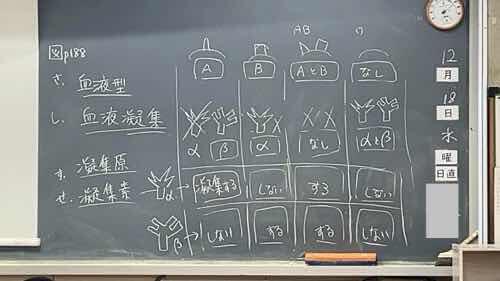 図p188
さ. 血液型
し. 血液凝集
す. 凝集原
せ. 凝集素
AB
A B AとB なし
α β α なし αとβ
α 凝集する しない する しない
β しない する する しない
12
月
18
日
水
曜
日直